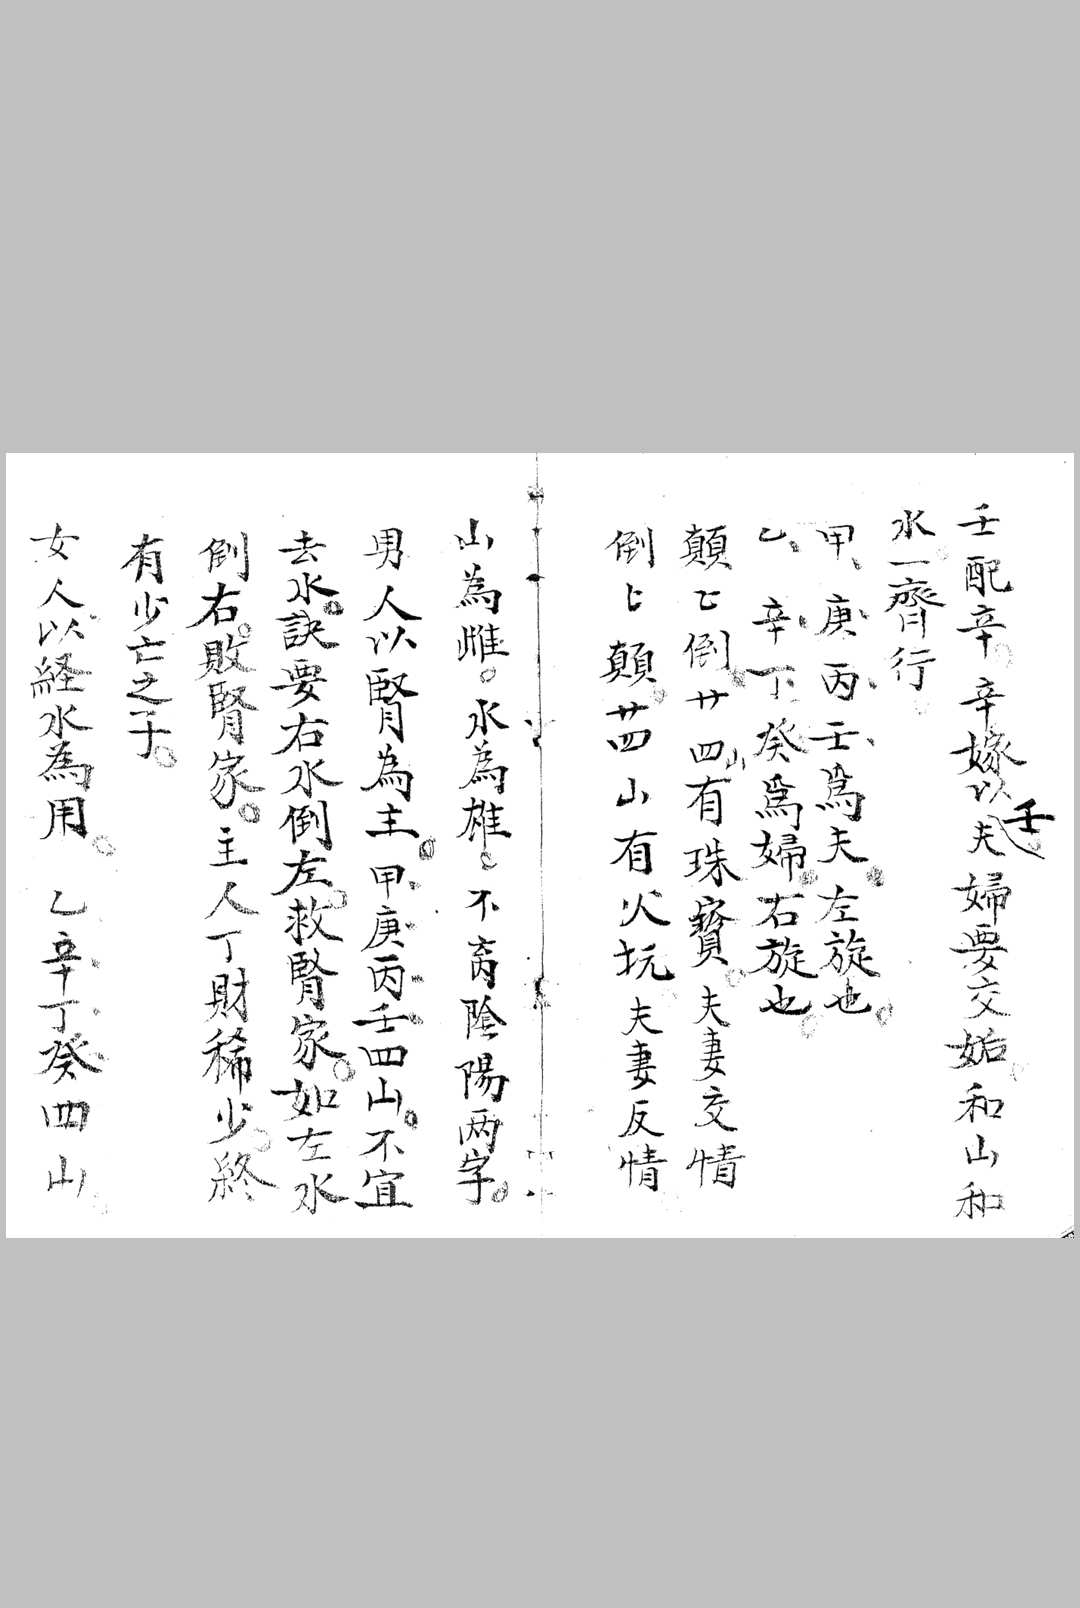 壬配辛辛嫁以壬夫婦要交姤和山和
水一齊行
甲庚丙壬爲夫左旋也
乙辛丁癸爲婦右旋也
顛〻倒廿四山有珠寳夫妻交情
倒〻顛廿四山有火坑夫妻反情
山為雌水為雄不啇陰陽两字
男人以腎為主甲庚丙壬四山不宜
去水訣要右水倒左救腎家如左水
倒右敗腎家主人丁財稀少終
有少亡之子
女人以経水為用乙辛丁癸四山